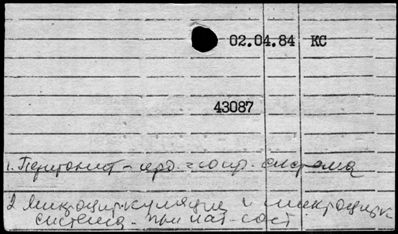 02.04.84 КС
43087
1. Перитонит - кро
система
2. Микроциркуляция и микроцирк
система при пат. сост.